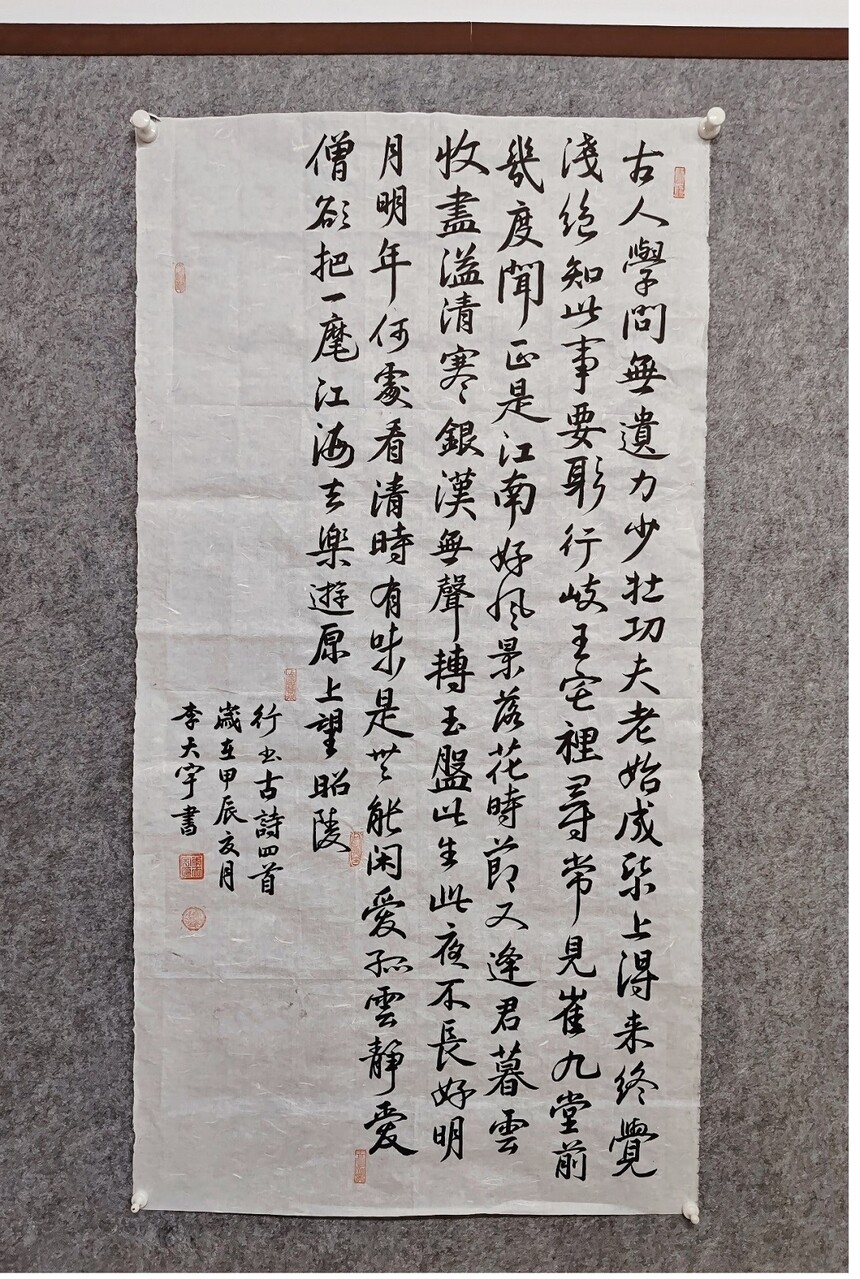 古人學問無遺力少壮功夫老始成紙上得来終覺
淺絕知此事要躬行岐王宅裡尋常見崔九堂前
幾度聞正是江南好風景落花時節又逢君暮雲
收盡溢清寒銀漢無聲轉玉盤此生此夜不長好明
月明年何處看清時有味是無能闲愛孤雲靜愛
僧欲把一麾江海去樂遊原上望昭陵
行书古詩四首
歲在甲辰亥月
李大宇書